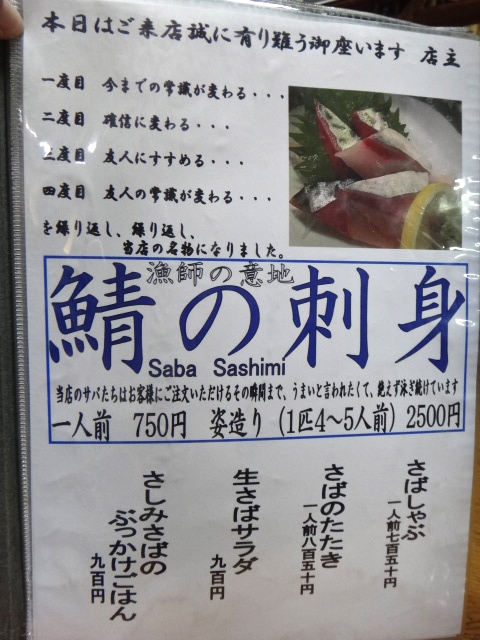 本日はご来店誠に有り難う御座います 店主
一度目 今までの常識が変わる・・・
二度目 確信に変わる・・・
三度目 友人にすすめる・・・
四度目 友人の常識が変わる・・・
を繰り返し、繰り返し、
当店の名物になりました。
漁師の意地
鯖の刺身
Saba Sashimi
当店のサバたちはお客様にご注文いただけるその瞬間まで、うまいと言われたくて、絶えず泳ぎ続けています
一人前 750円 姿造り（1匹4～5人前）2500円
さばしゃぶ
一人前七百五十円
さばのたたき
一人前八百五十円
生さばサラダ
九百円
さしみさばの
ぶっかけごはん
九百円